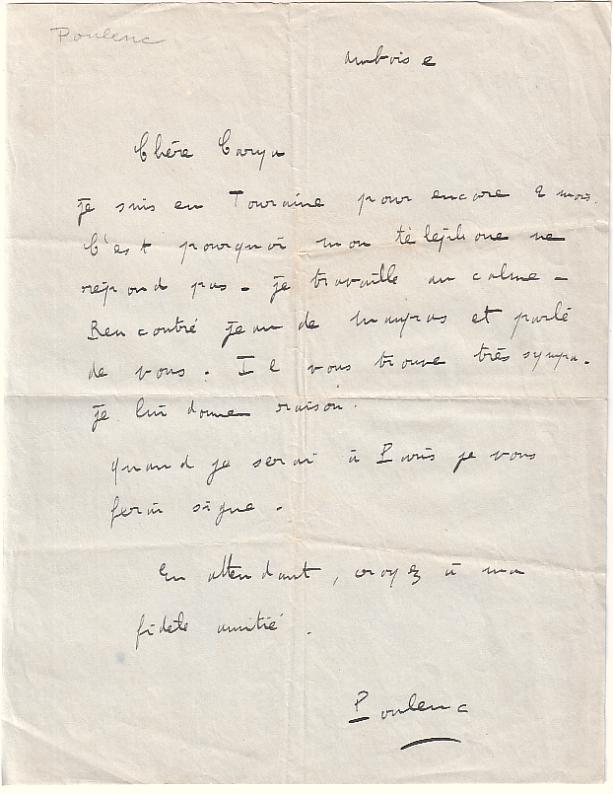 Poulenc
Amboise
Chère Carya
Je suis en Touraine pour encore 2 mois.
C'est pourquoi mon téléphone ne
répond pas - Je travaille au calme -
Rencontré Jean de et parlé
de vous. Il vous trouve très sympa.
Je lui donne raison.
Quand je serai à Paris je vous
ferai signe.
En attendant, croyez à ma
fidèle amitié.
Poulenc